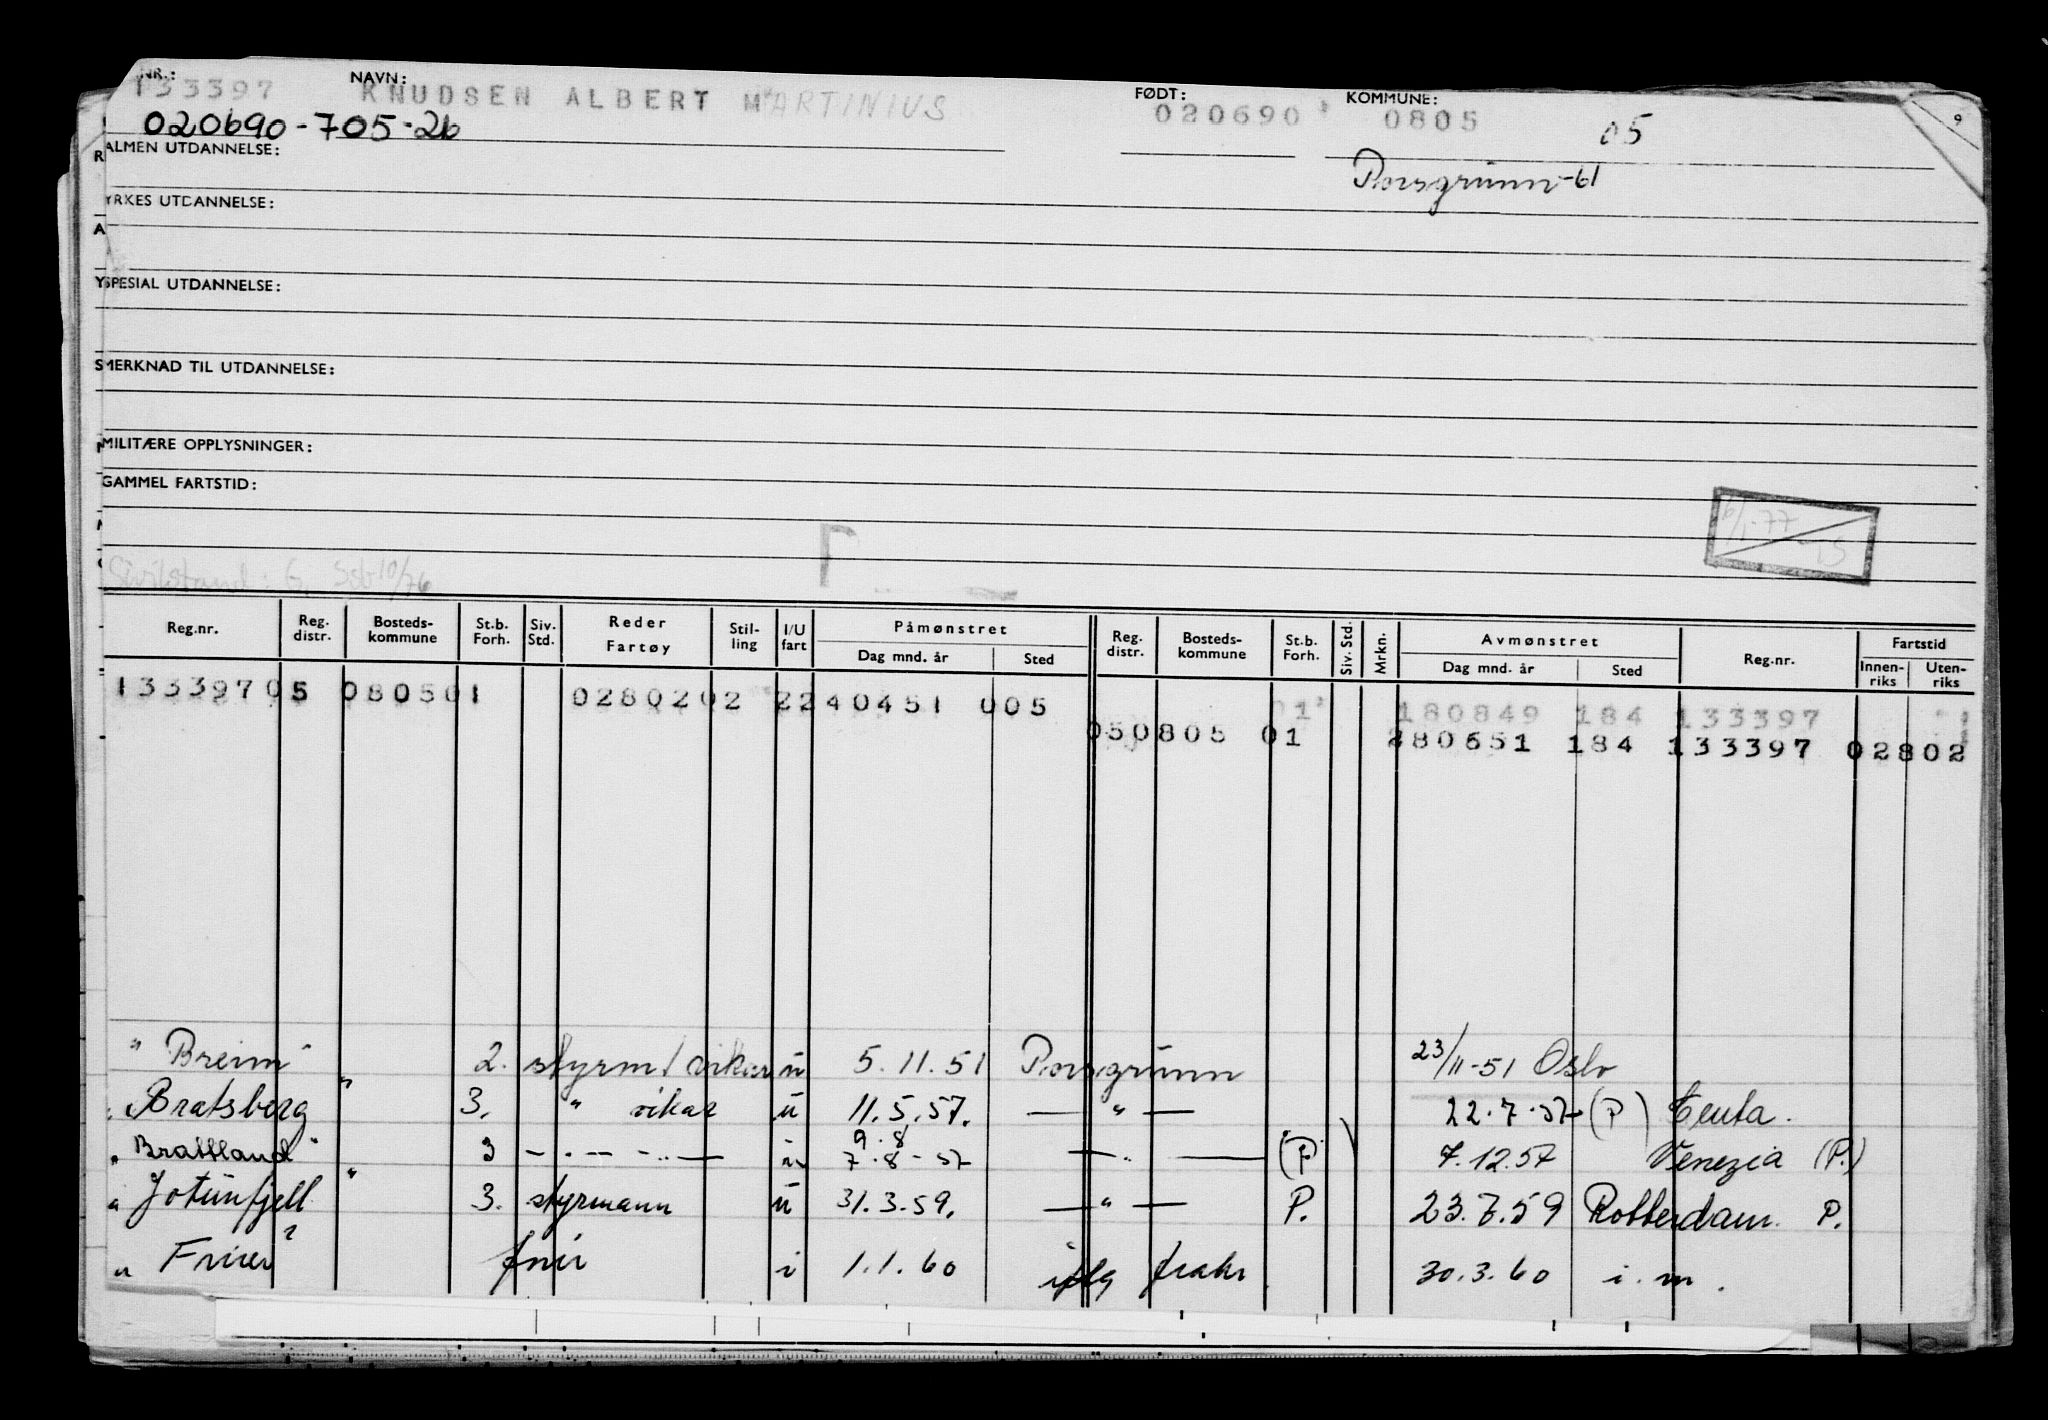 NR.: NAVN: FØDT: KOMMUNE:
133397 KNUDSEN ALBERT MARTINIUS 020690 0805 05 9
020690-705-26
ALMEN UTDANNELSE: Porsgrunn-61
YRKES UTDANNELSE:
SPESIAL UTDANNELSE:
MERKNAD TIL UTDANNELSE:
MILITÆRE OPPLYSNINGER:
GAMMEL FARTSTID:
6/1-77
Sivilstand: G. Ssb 10/76
Reg.nr. Reg. distr. Bosteds-kommune St.b. Forh. Siv. Std. Reder Fartøy Stil-ling I/U fart Påmønstret Dag mnd. år Sted Reg. distr. Bosteds-kommune St.b. Forh. Siv. Std. Mrkn. Avmønstret Dag mnd. år Sted Reg.nr. Fartstid Innen-riks Uten-riks
133397 05 0805 01 02802 02 2 240451 005
01 180849 184 133397
05 0805 01 280651 184 133397 02802
"Breim" 2. styrm/vikar u 5.11.51 Porsgrunn 23/11-51 Oslo
"Bratsberg" 3. " vikar u 11.5.57. — " — 22.7.57 (P) Ceuta.
"Brattland" 3 — . — — . . — u 9.8 7.8-57 — .. — (P) 7.12.57 Venezia (P.)
"Jotunfjell" 3. styrmann u 31.3.59. — " — P. 23.7.59 Rotterdam. P.
" Frier" i 1.1.60 iflg 30.3.60 i.m.